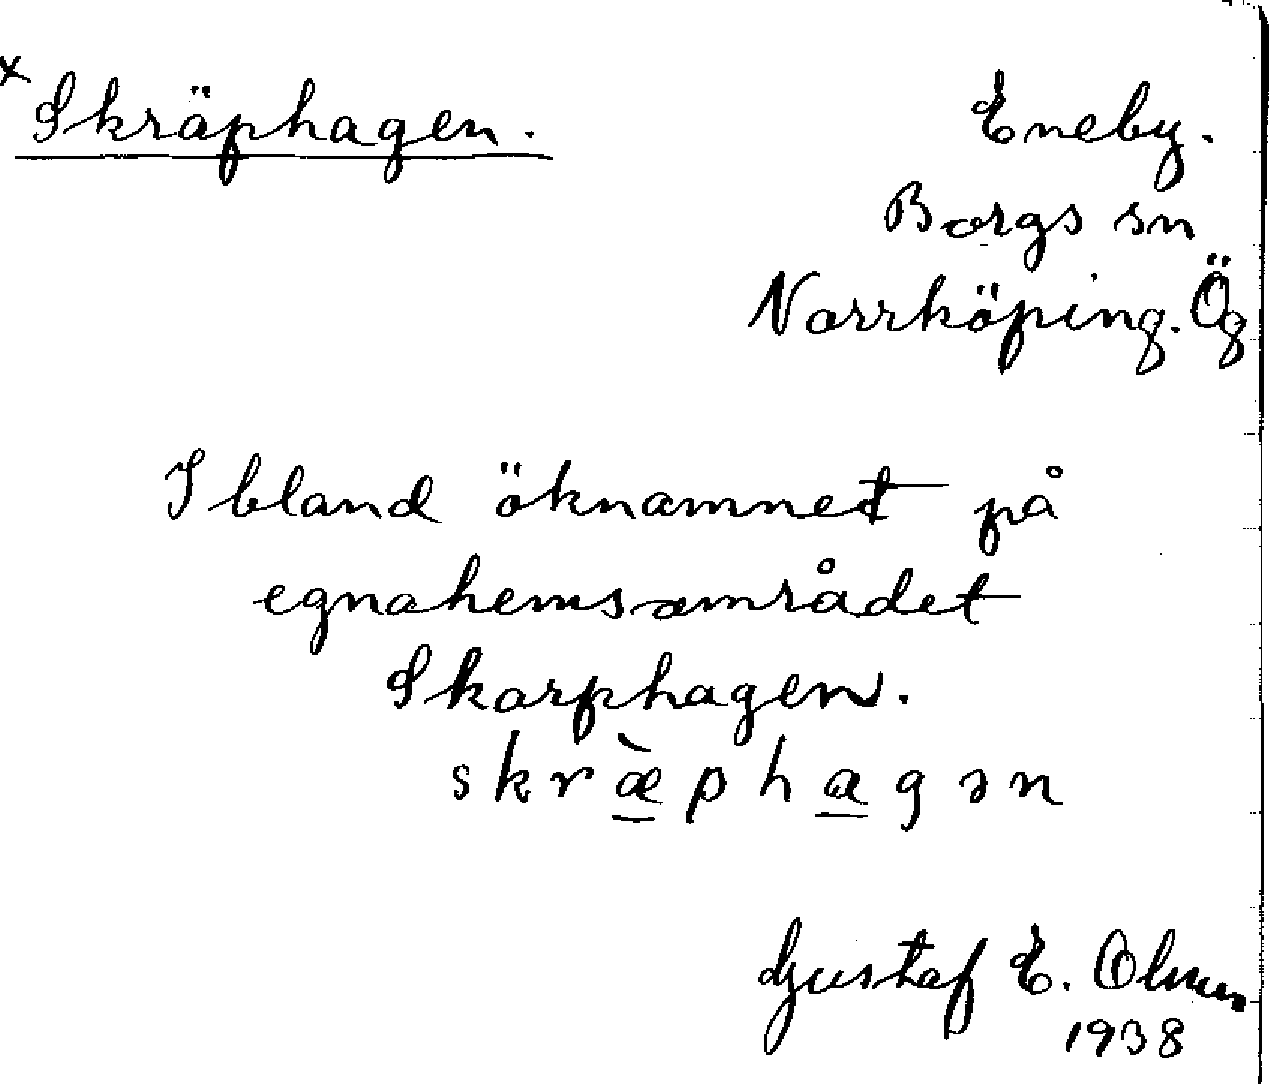 x Skräphagen.
Eneby.
Borgs sn
Norrköping. Ög
Ibland öknamnet på
egnahemsområdet
Skarphagen.
skræ̀phagən
Gustaf E. Olmer
1938